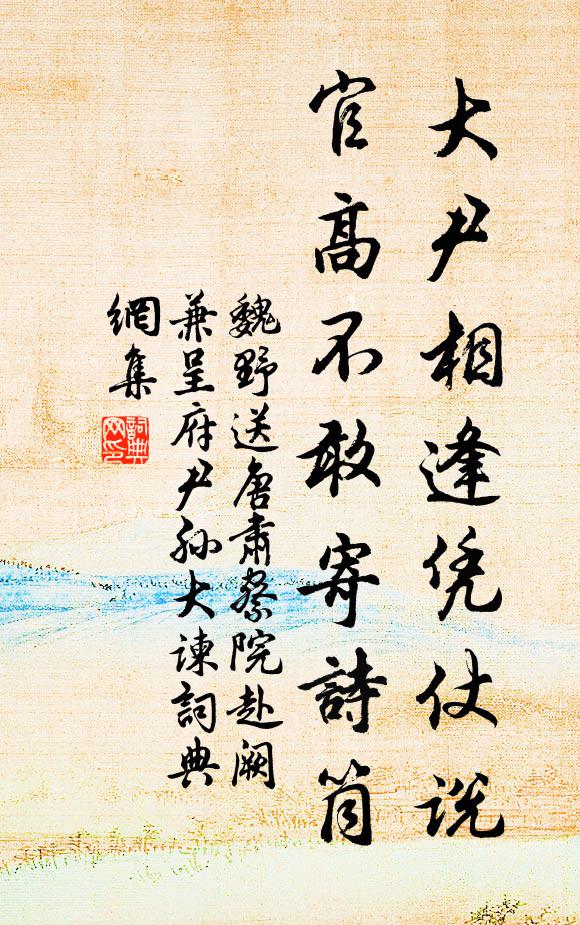 大尹相逢凭仗説
官高不敢寄詩筒
魏野送唐肅察院赴阙
兼呈府尹孙大谏詞典
網集
詞典
网印